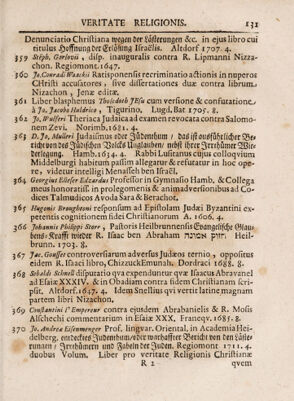 VERITATE RELIGIONIS. 131
Denunciatio Christiana wegen der Lästerungen &c. in ejus libro cui
titulus Hoffnung der Erlösung Israëlis. Altdorf 1707. 4.
359 Steph. Gerlovii, disp. inauguralis contra R. Lipmanni Nizza-
chon. Regiomont. 1647.
360 Jo. Conradi Wackii Ratisponensis recriminatio actionis in nuperos
CHristi accusatores, sive dissertationes duæ contra librum
Nizachon, Jenæ editæ.
361 Liber blasphemus Tholedoth JEsu cum versione & confutatione
à Jo. Jacobo Huldrico, Tigurino, Lugd. Bat 1705. 8.
362 Jo. Wulferi Theriaca Judaica ad examen revocata contra Salomo-
nem Zevi. Norimb. 1681. 4.
363 D. Jo. Mulleri Judaismus oder Jüdenthum / das ist ausführlicher Be-
richt von des Jüdischen Volcks Unglauben / nebst ihrer Irrthümer Wie-
derlegung. Hamb. 1644. 4. Rabbi Lusitanus cujus colloquium
Middelburgi habitum passim allegatur & refutatur in hoc ope-
re, videtur intelligi Menasseh ben Israël.
364 Georgius Eliesér Edzardus Professor in Gymnasio Hamb. & Collega
meus honoratiss. in prolegomenis & animadversionibus ad Co-
dices Talmudicos Avoda Sara & Berachot.
365 Hugonis Broughtoni responsum ad Epistolam Judæi Byzantini ex-
petentis cognitionem fidei Christianorum A. 1606. 4.
366 Johannis Philippi Storr, Pastoris Heilbrunnensis Evangelische Glau-
bens-Krafft wieder R. Isaac ben Abraham חזוק אמונה Heil-
brunn. 1703. 8.
367 Jac. Gousset controversiarum adversus Judæos ternio, oppositus
eidem R. Isaaci libro, Chizzouk-Emunah. Dordraci 1688. 8.
368 Sebaldi Schnell disputatio qva expenduntur qvæ Isaacus Abravanel
ad Esaiæ XXXIV. & in Obadiam contra fidem Christianam scri-
psit. Altdorf. 1647. 4. Idem Snellius qvi vertit latine magnam
partem libri Nizachon.
369 Constantini l'Empereur contra ejusdem Abarbanielis & R. Mosis
Alschechi commentarium in Esaiæ XXX. Franeqv. 1685. 8.
370 Jo. Andreæ Eisenmenger Prof. lingvar. Oriental. in Academia Hei-
delberg. entdecktes Judenthum / oder warhaffter Bericht von den Läste-
rungen / Irrthümern und Fabeln der Juden. Regiomont 1711. 4.
duobus Volum. Liber pro veritate Religionis Christianæ
R 2 qvem